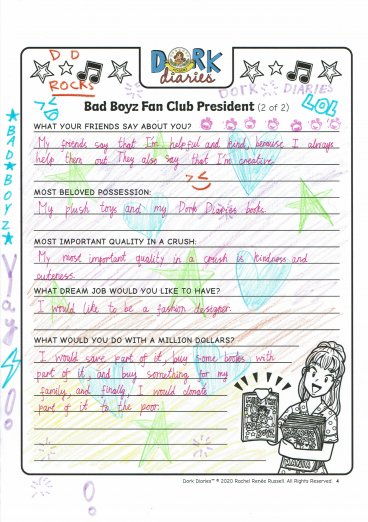 D D
ROCKS
DORK
diaries
DORK DIARIES
LOL
Bad Boyz Fan Club President (2 of 2)
★BAD★BOYZ★
WHAT YOUR FRIENDS SAY ABOUT YOU?
My friends say that I'm helpful and kind, because I always
help them out. They also say that I'm creative.
MOST BELOVED POSSESSION:
My plush toys and my Dork Diaries books.
MOST IMPORTANT QUALITY IN A CRUSH:
My most important quality in a crush is kindness and
cuteness.
WHAT DREAM JOB WOULD YOU LIKE TO HAVE?
I would like to be a fashion designer.
WHAT WOULD YOU DO WITH A MILLION DOLLARS?
I would save part of it, buy some books with
part of it, and buy something for my
family, and finally, I would donate
part of it to the poor.
Yay
Dork Diaries™ © 2020 Rachel Renée Russell. All Rights Reserved. 4